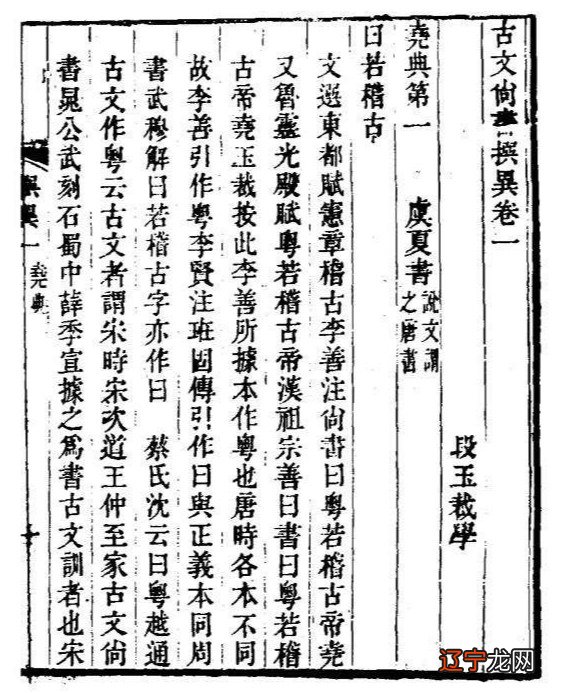 古文尚書撰異卷一
段玉裁學
堯典第一 虞夏書 說文謂之唐書
曰若稽古
文選東都賦憲章稽古李善注尚書曰粵若稽古帝堯
又魯靈光殿賦粵若稽古帝漢祖宗善曰書曰粵若稽
古帝堯玉裁按此李善所據本作粵也唐時各本不同
故李善引作粵李賢注班固傳引作曰與正義本同周
書武穆解曰若稽古字亦作曰 蔡氏沈云曰粵越通
古文作粵云古文者謂宋時宋次道王仲至家古文尚
書晁公武刻石蜀中薛季宣據之為書古文訓者也宋
撰異一 堯典
辽宁龙网